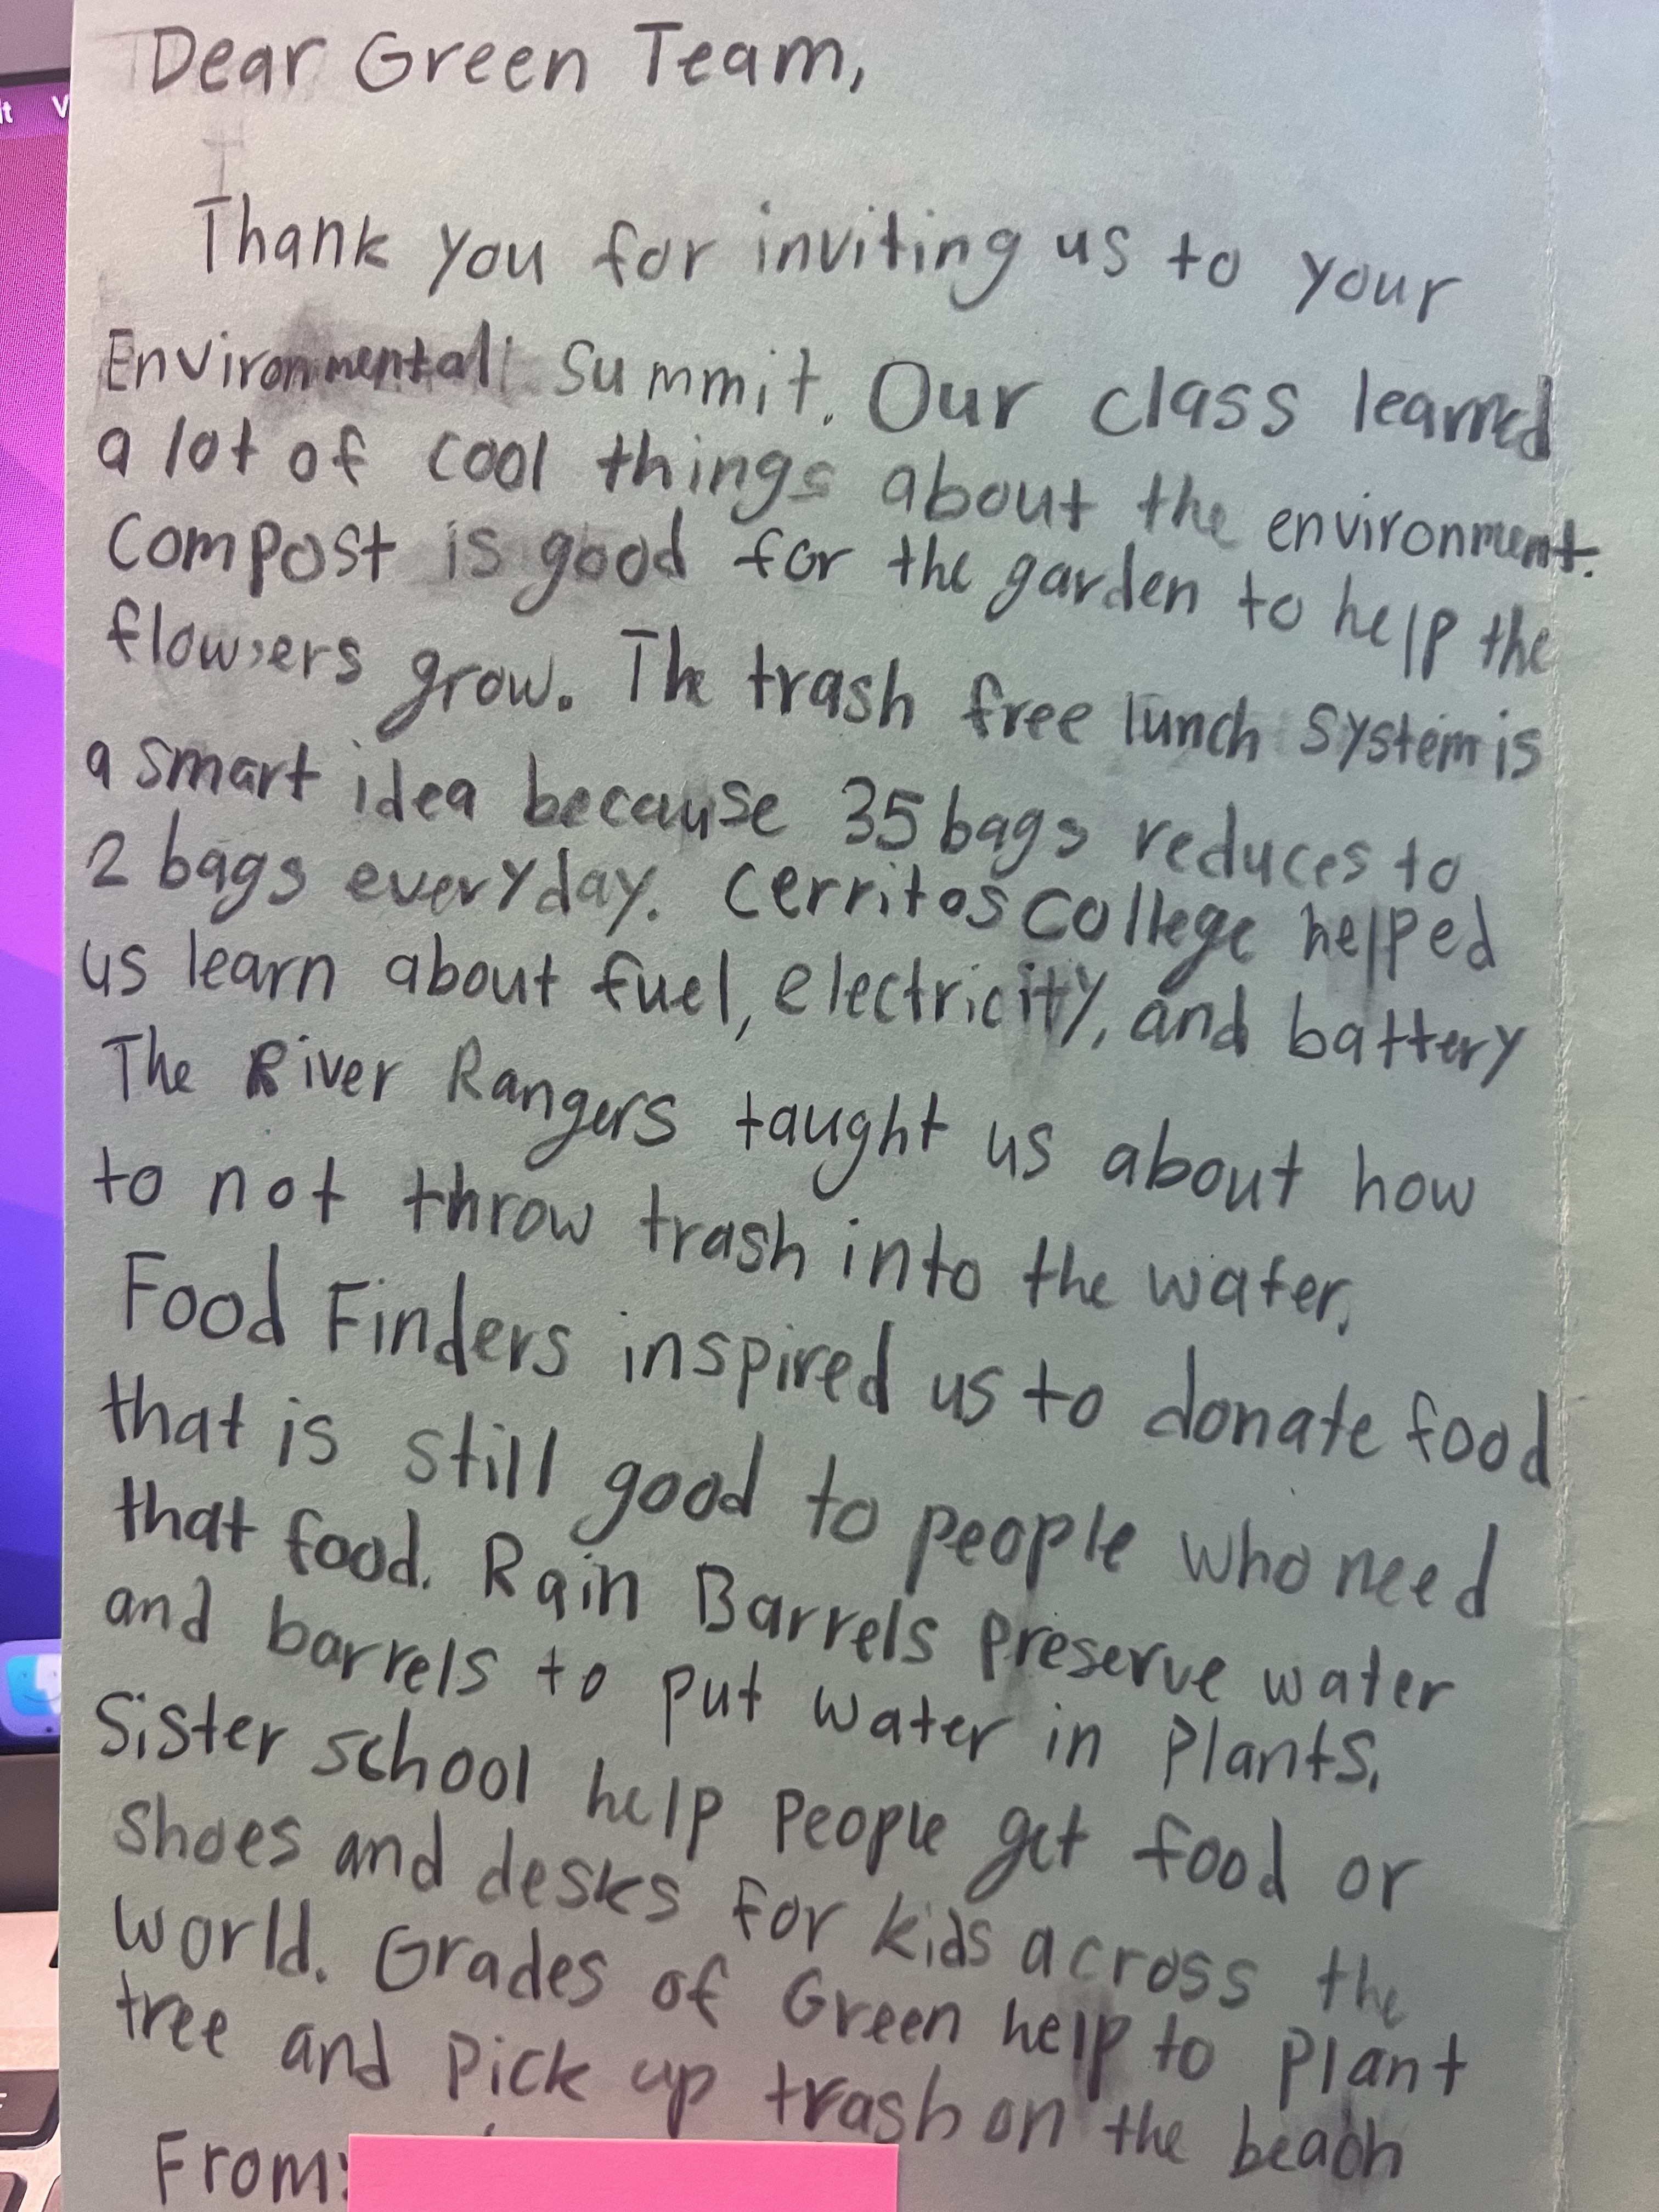 Dear Green Team,
Thank you for inviting us to your
Environmental Summit. Our class learned
a lot of cool things about the environment.
Compost is good for the garden to help the
flowers grow. The trash free lunch system is
a smart idea because 35 bags reduces to
2 bags everyday. Cerritos College helped
us learn about fuel, electricity, and battery
The River Rangers taught us about how
to not throw trash into the water.
Food Finders inspired us to donate food
that is still good to people who need
that food. Rain Barrels preserve water
and barrels to put water in plants.
Sister school help people get food or
shoes and desks for kids across the
world. Grades of Green help to plant
tree and pick up trash on the beach
From: